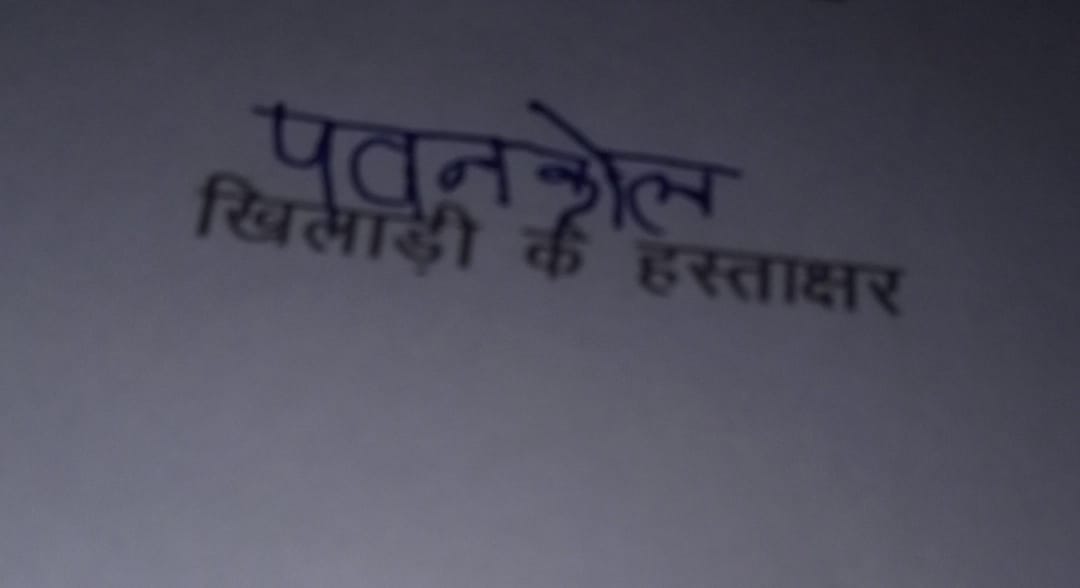 पवन कोल
खिलाड़ी के हस्ताक्षर